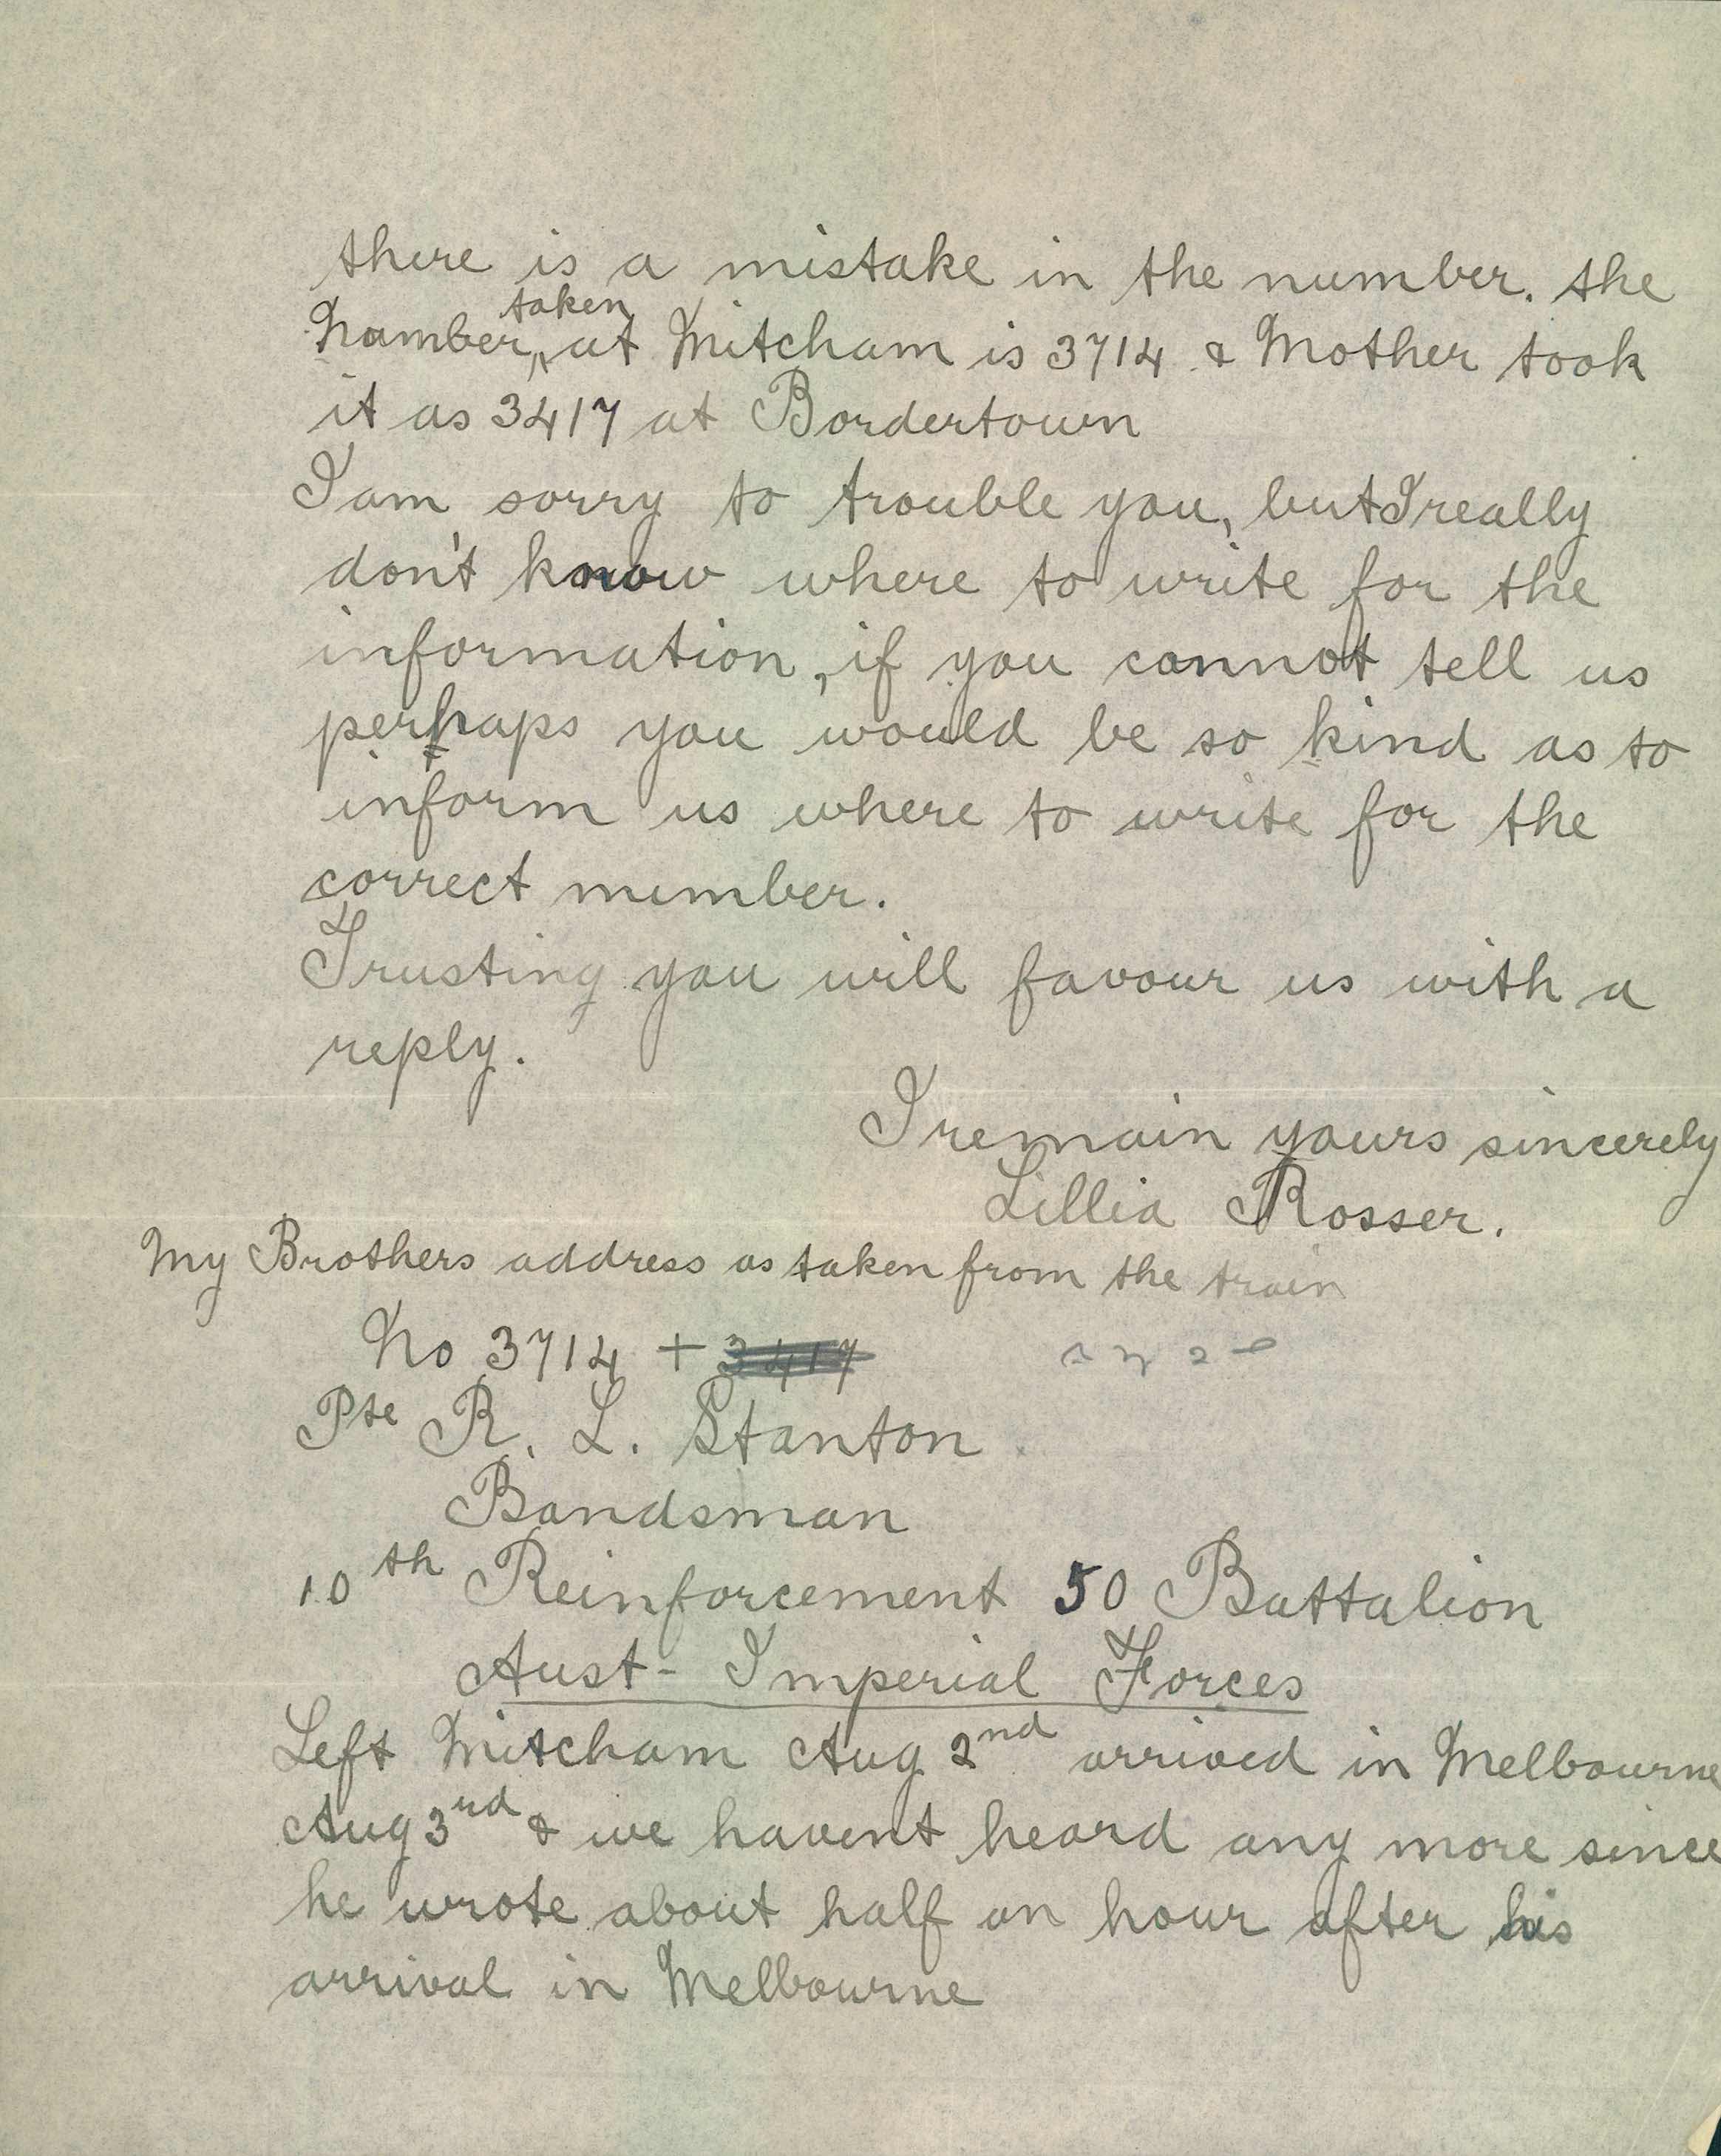 there is a mistake in the number. the
Number, taken at Mitcham is 3714 & Mother took
it as 3417 at Bordertown
I am sorry to trouble you, but I really
don't know where to write for the
information, if you cannot tell us
perhaps you would be so kind as to
inform us where to write for the
correct number.
Trusting you will favour us with a
reply.
I remain yours sincerely
Lillia Rosser.
My Brothers address as taken from the train
No 3714 + 3417
Pte R. L. Stanton
Bandsman
10th Reinforcement 50 Battalion
Aust- Imperial Forces
Left Mitcham Aug 2nd arrived in Melbourne
Aug 3rd & we havent heard any more since
he wrote about half an hour after his
arrival in Melbourne